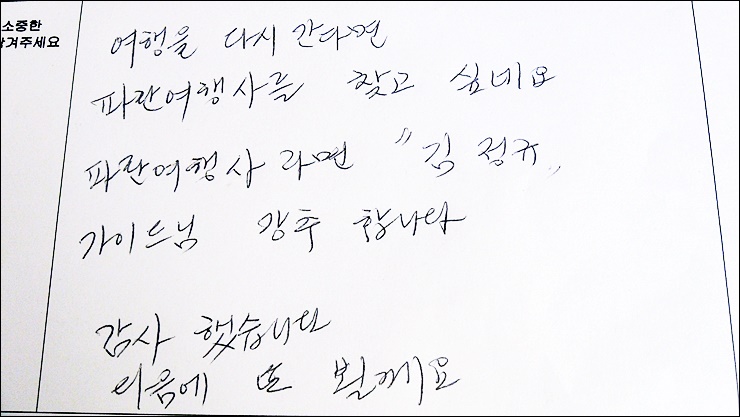 소중한
남겨주세요
여행을 다시 간다면
파란여행사를 찾고 싶네요
파란여행사 라면 "김 정규"
가이드님 강추 합니다
감사 했습니다
다음에 또 뵐께요